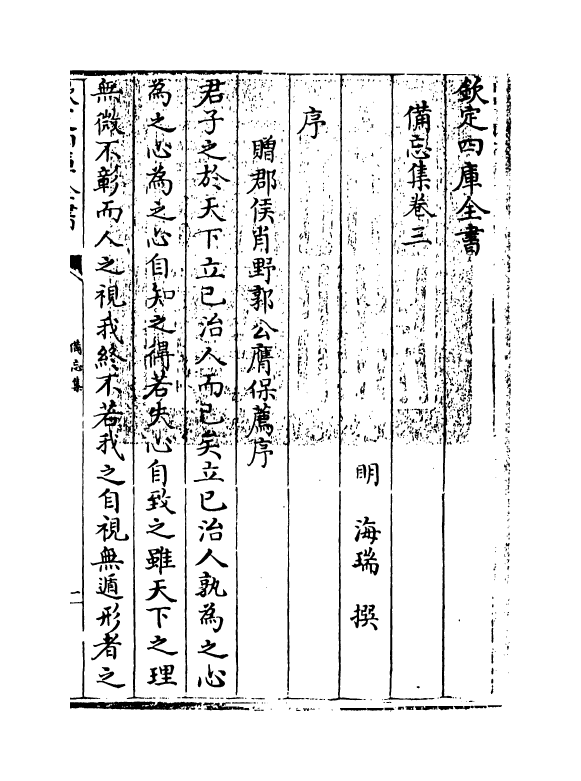 欽定四庫全書
備忘集卷三
明 海瑞 撰
序
贈郡侯肖野郭公膺保薦序
君子之於天下立已治人而已矣立已治人孰為之心
為之心為之心自知之得若失心自致之雖天下之理
無微不彰而人之視我終不若我之自視無遁形者之
欽定四庫全書
備忘集
一